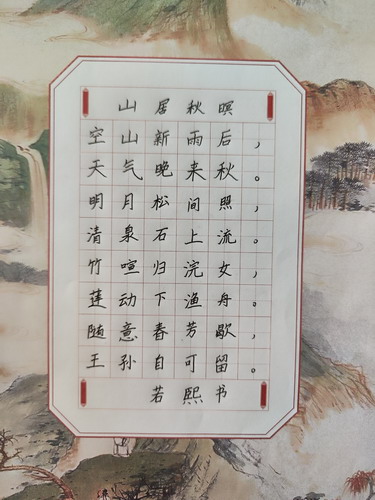 山居秋暝
空山新雨后，
天气晚来秋。
明月松间照，
清泉石上流。
竹喧归浣女，
莲动下渔舟。
随意春芳歇，
王孙自可留。
若熙书